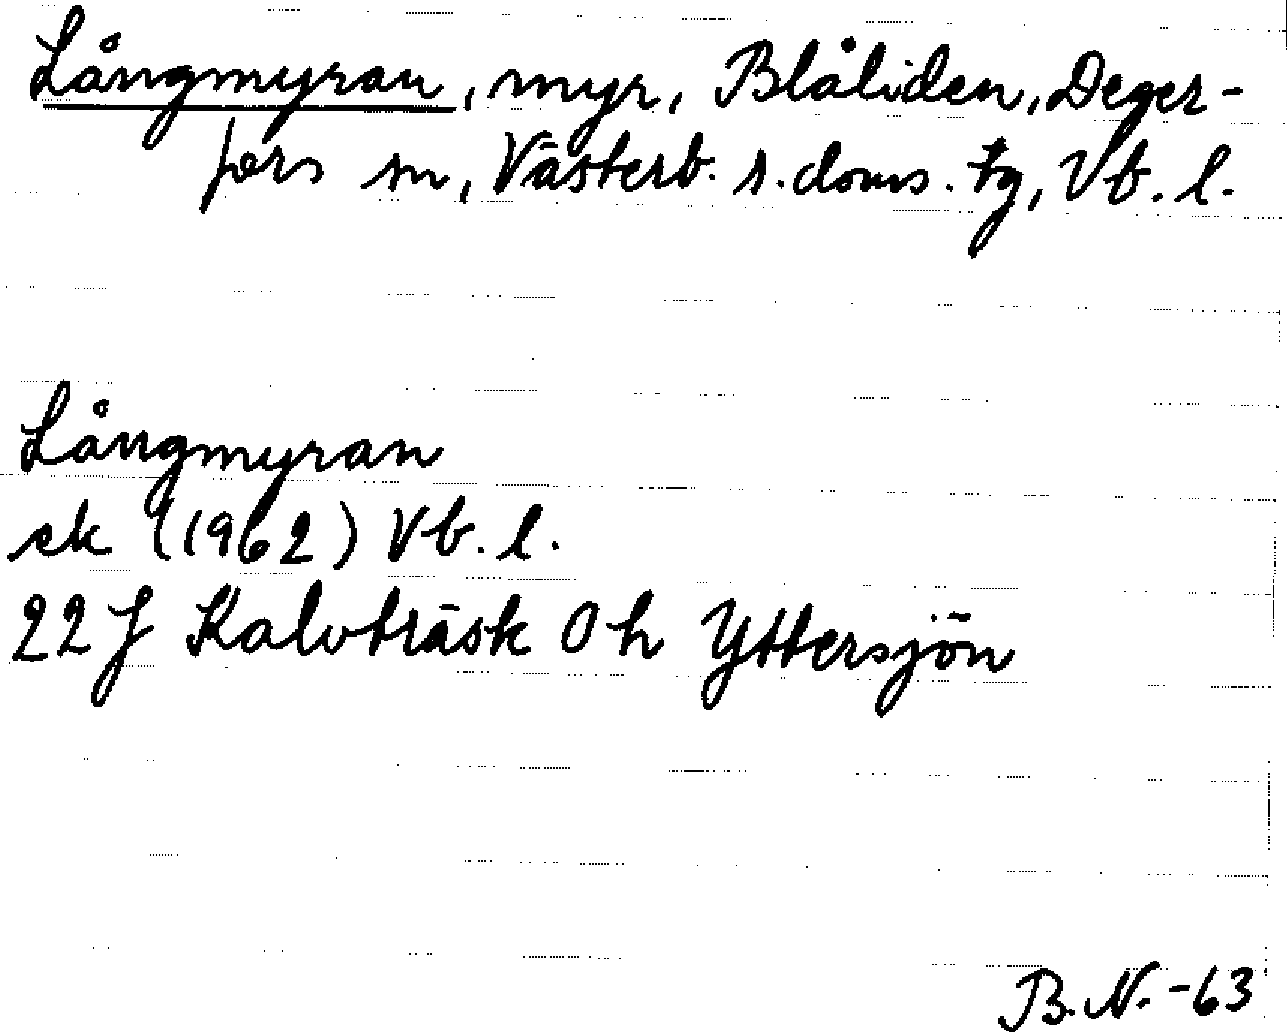 Långmyran, myr, Blåliden, Deger-
fors sn, Västerb. s. doms. tg, Vb. l.
Långmyran
ek (1962) Vb. l.
22 J Kalvträsk 0 h Yttersjön
B.N. -63